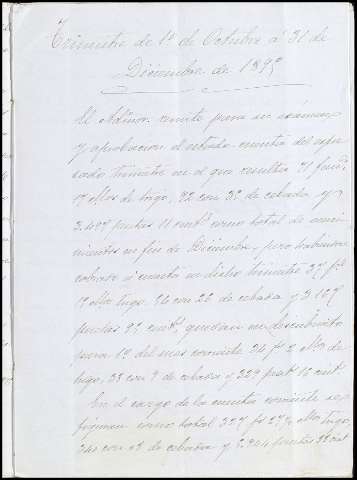 Trimestre de 1º de Octubre á 31 de
Diciembre de 1895
El Admor. remite para su exámen
y aprobacion el estado cuenta del espre-
sado trimestre en el que resultan 71 fan.
17 ctllos de trigo, 92 con 3º de cebada y
3.497 pesetas 11 cent. como total de venci-
mientos en fin de Diciembre, pero habiendo
cobrado á cuenta en dicho trimestre 37 fs
trigo, 26 con 22 de cebada y 3.167
pesetas 95 cent. quedan en descubierto
para 1º del mes corriente 34 fs 2 ctllos de
trigo, 33 con 9 de cebada y 329 pset. 16 cent.
En el cargo de la cuenta corriente se
figuran como total 327 fs ctllos trigo,
de cebada y pesetas